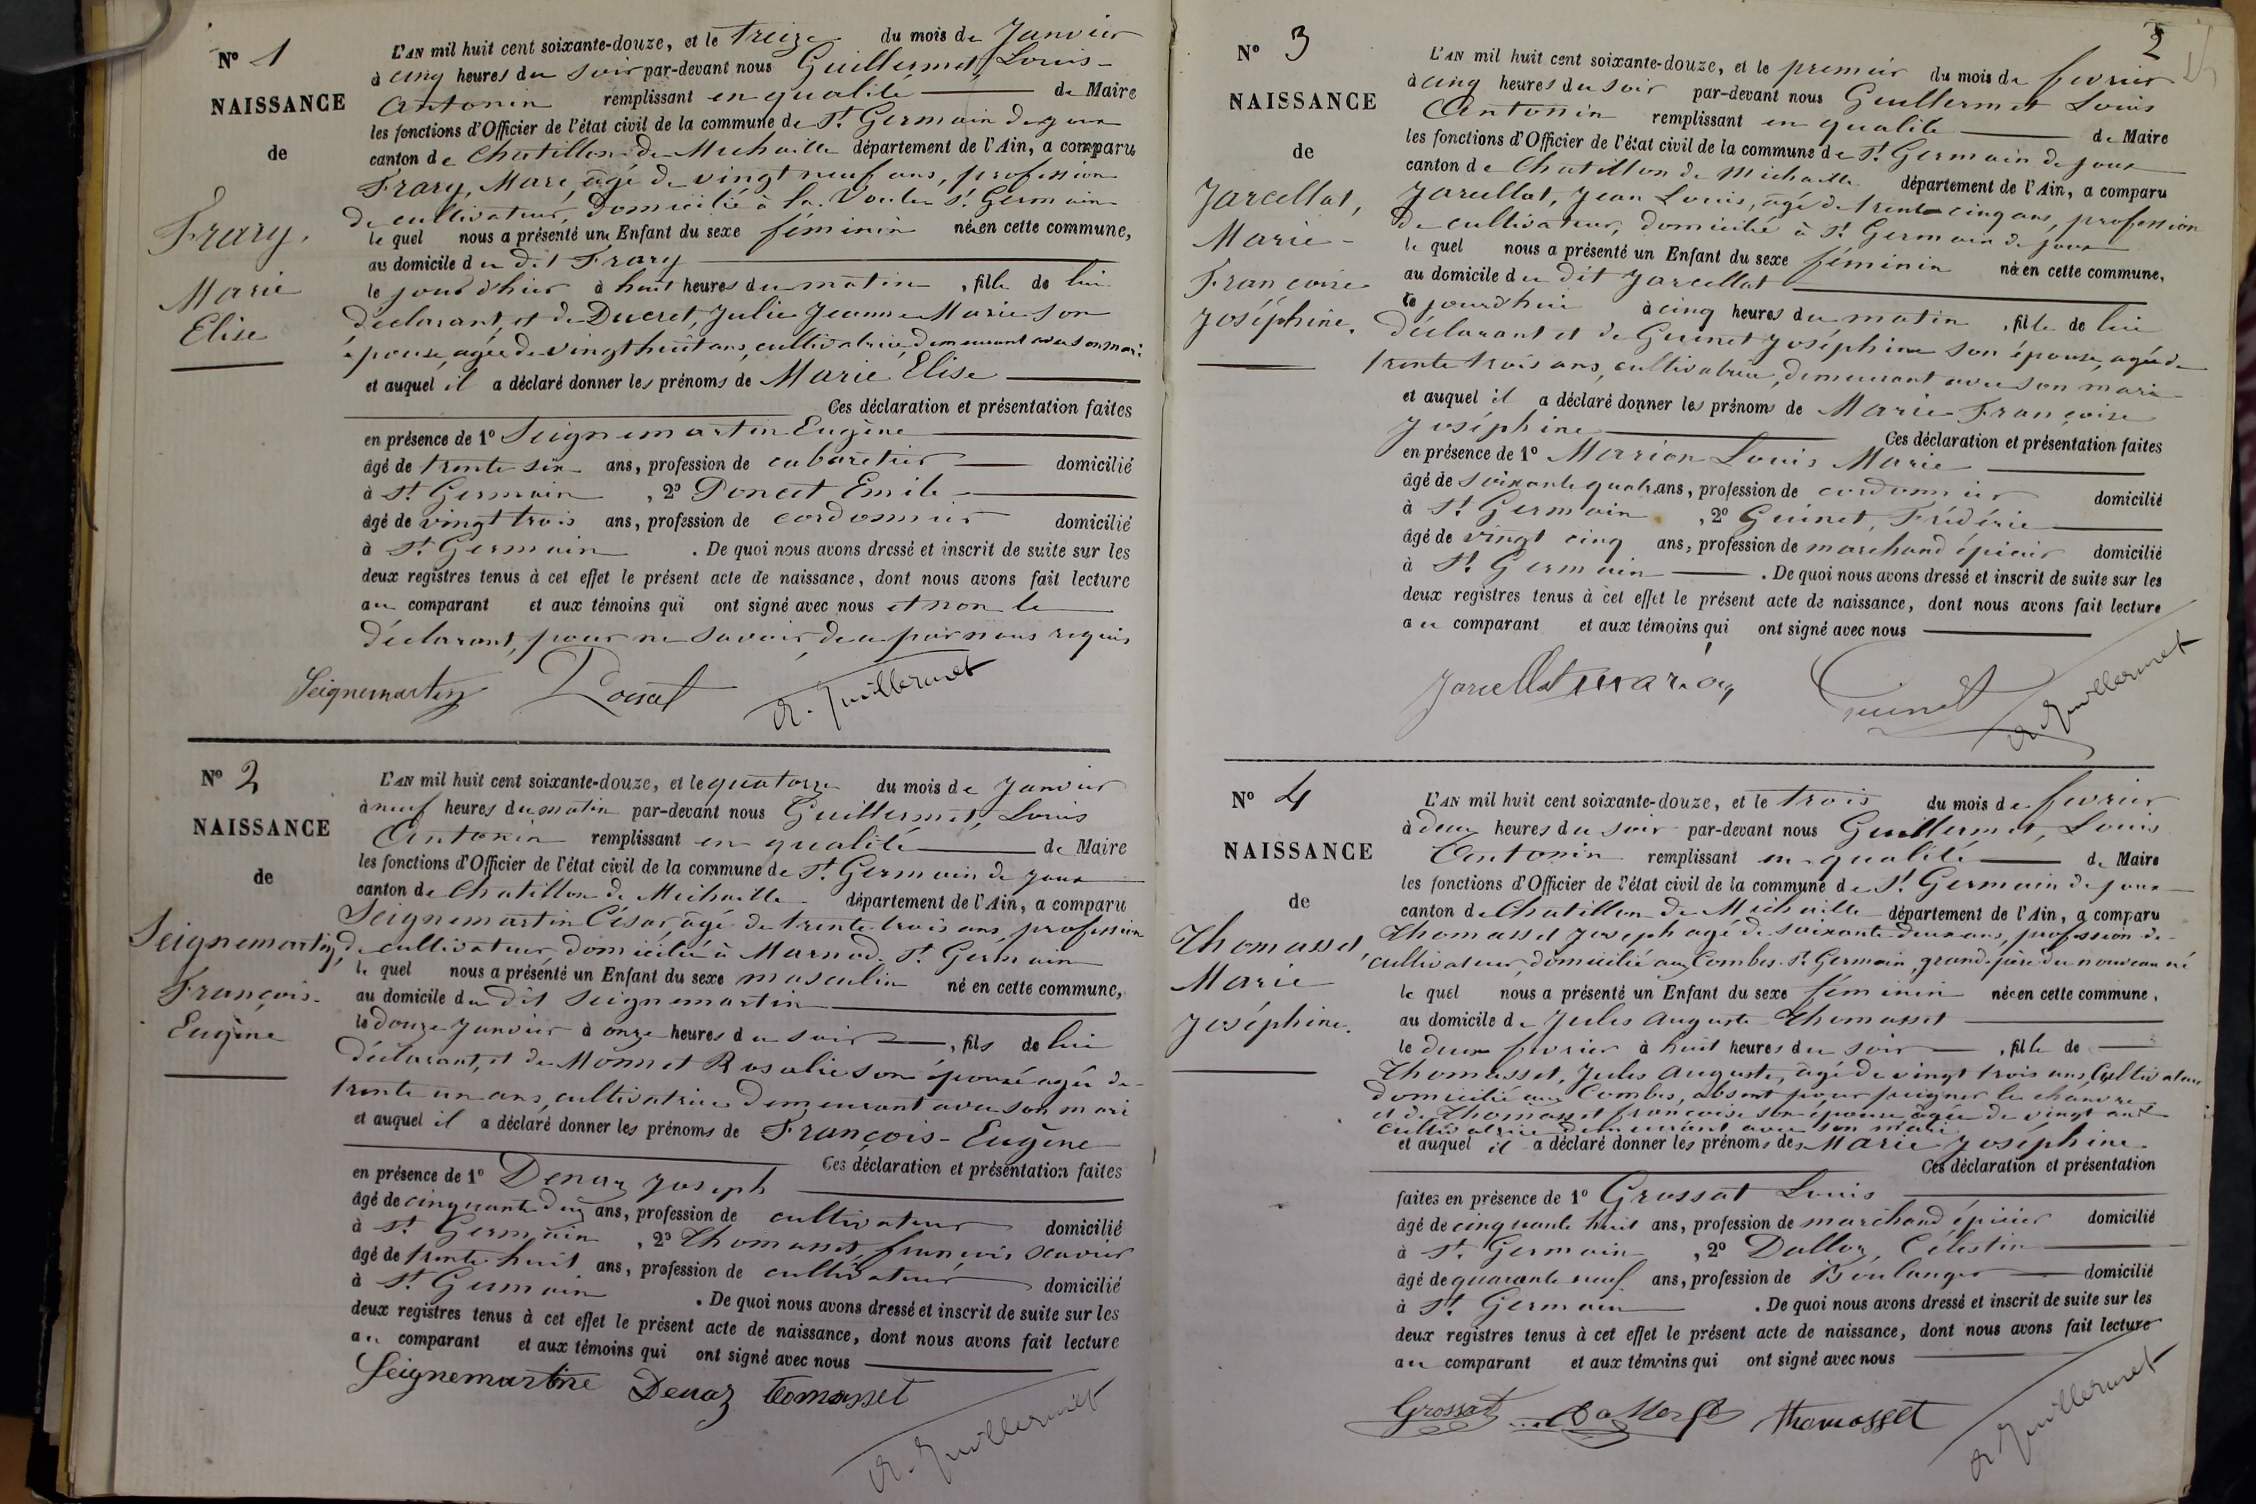 N° 1
NAISSANCE
de
Frary,
Marie
Elise
L'AN mil huit cent soixante-douze, et le treize du mois de Janvier
à cinq heures du soir par-devant nous Guillermet, Louis-
Antonin remplissant en qualité de Maire
les fonctions d'Officier de l'état civil de la commune de St. Germain de joux
canton de Chatillon de Michaille département de l'Ain, a comparu
Frary, Marie, âgé de vingt neuf ans, profession
de cultivateur, domicilié à la Voute St. Germain
le quel nous a présenté un Enfant du sexe féminin née en cette commune,
au domicile du dit Frary
le jourd'hui à huit heures du matin, fille de lui
déclarant, et de Ducret, Julie Jeanne Marie son
épouse, agée de vingt huit ans, cultivatrice, demeurant avec son mari
et auquel il a déclaré donner les prénoms de Marie Elise
Ces déclaration et présentation faites
en présence de 1° Seignemartin Eugène
âgé de trente six ans, profession de cabaretier domicilié
à St. Germain, 2° Poncet Emile
âgé de vingt trois ans, profession de cordonnier domicilié
à St. Germain. De quoi nous avons dressé et inscrit de suite sur les
deux registres tenus à cet effet le présent acte de naissance, dont nous avons fait lecture
au comparant et aux témoins qui ont signé avec nous et non le
déclarant, pour ne savoir, de ce par nous requis
Seignemartin Poncet A. Guillermet
N° 2
NAISSANCE
de
Seignemartin,
François-
Eugène
L'AN mil huit cent soixante-douze, et le quatorze du mois de Janvier
à neuf heures du matin par-devant nous Guillermet, Louis
Antonin remplissant en qualité de Maire
les fonctions d'Officier de l'état civil de la commune de St. Germain de joux
canton de Chatillon de Michaille département de l'Ain, a comparu
Seignemartin César, âgé de trente trois ans, profession
de cultivateur, domicilié à Marnod St. Germain
le quel nous a présenté un Enfant du sexe masculin né en cette commune,
au domicile du dit Seignemartin
le douze Janvier à onze heures du soir, fils de lui
déclarant, et de Monnet Rosalie son épouse agée de
trente un ans, cultivatrice demeurant avec son mari
et auquel il a déclaré donner les prénoms de François-Eugène
Ces déclaration et présentation faites
en présence de 1° Denaz Joseph
âgé de cinquante deux ans, profession de cultivateur domicilié
à St. Germain, 2° Thomasset, françois Xavier
âgé de trente huit ans, profession de cultivateur domicilié
à St. Germain. De quoi nous avons dressé et inscrit de suite sur les
deux registres tenus à cet effet le présent acte de naissance, dont nous avons fait lecture
au comparant et aux témoins qui ont signé avec nous
Seignemartin Denaz tomasset
A. Guillermet
2
N° 3
NAISSANCE
de
Jarcellat,
Marie-
Françoise
Joséphine.
L'AN mil huit cent soixante-douze, et le premier du mois de fevrier
à cinq heures du soir par-devant nous Guillermet Louis
Antonin remplissant en qualité de Maire
les fonctions d'Officier de l'état civil de la commune de St. Germain de joux
canton de Chatillon de Michaille département de l'Ain, a comparu
Jarcellat, Jean Louis, âgé de trente cinq ans, profession
de cultivateur, domicilié à St. Germain de joux
le quel nous a présenté un Enfant du sexe féminin née en cette commune,
au domicile du dit Jarcellat
ce jourd'hui à cinq heures du matin, fille de lui
déclarant et de Guinet Joséphine son épouse, agée de
trente trois ans, cultivatrice, demeurant avec son mari
et auquel il a déclaré donner les prénoms de Marie Françoise
Joséphine Ces déclaration et présentation faites
en présence de 1° Marion Louis Marie
âgé de soixante quatre ans, profession de cordonnier domicilié
à St. Germain, 2° Guinet, Frédéric
âgé de vingt cinq ans, profession de marchand épicier domicilié
à St. Germain. De quoi nous avons dressé et inscrit de suite sur les
deux registres tenus à cet effet le présent acte de naissance, dont nous avons fait lecture
au comparant et aux témoins qui ont signé avec nous
Jarcellat marion Guinet A. Guillermet
N° 4
NAISSANCE
de
Thomasset,
Marie
Joséphine.
L'AN mil huit cent soixante-douze, et le trois du mois de fevrier
à deux heures du soir par-devant nous Guillermet, Louis
Antonin remplissant en qualité de Maire
les fonctions d'Officier de l'état civil de la commune de St. Germain de joux
canton de Chatillon de Michaille département de l'Ain, a comparu
Thomasset Joseph agé de soixante deux ans, profession de
cultivateur, domicilié aux Combes St. Germain, grand-père du nouveau né
le quel nous a présenté un Enfant du sexe féminin née en cette commune,
au domicile de Jules Auguste Thomasset
le deux fevrier à huit heures du soir, fille de
Thomasset, Jules Auguste, âgé de vingt trois ans, Cultivateur
domicilié aux Combes, absent pour peigner le chanvre
et de Thomasset françoise son épouse âgée de vingt ans
cultivatrice demeurant avec son mari
et auquel il a déclaré donner les prénoms de Marie Joséphine.
Ces déclaration et présentation
faites en présence de 1° Grossat Louis
âgé de cinquante huit ans, profession de marchand épicier domicilié
à St. Germain, 2° Dalloz, Célestin
âgé de quarante neuf ans, profession de Boulanger domicilié
à St. Germain. De quoi nous avons dressé et inscrit de suite sur les
deux registres tenus à cet effet le présent acte de naissance, dont nous avons fait lecture
au comparant et aux témoins qui ont signé avec nous
Grossat thomasset A. Guillermet